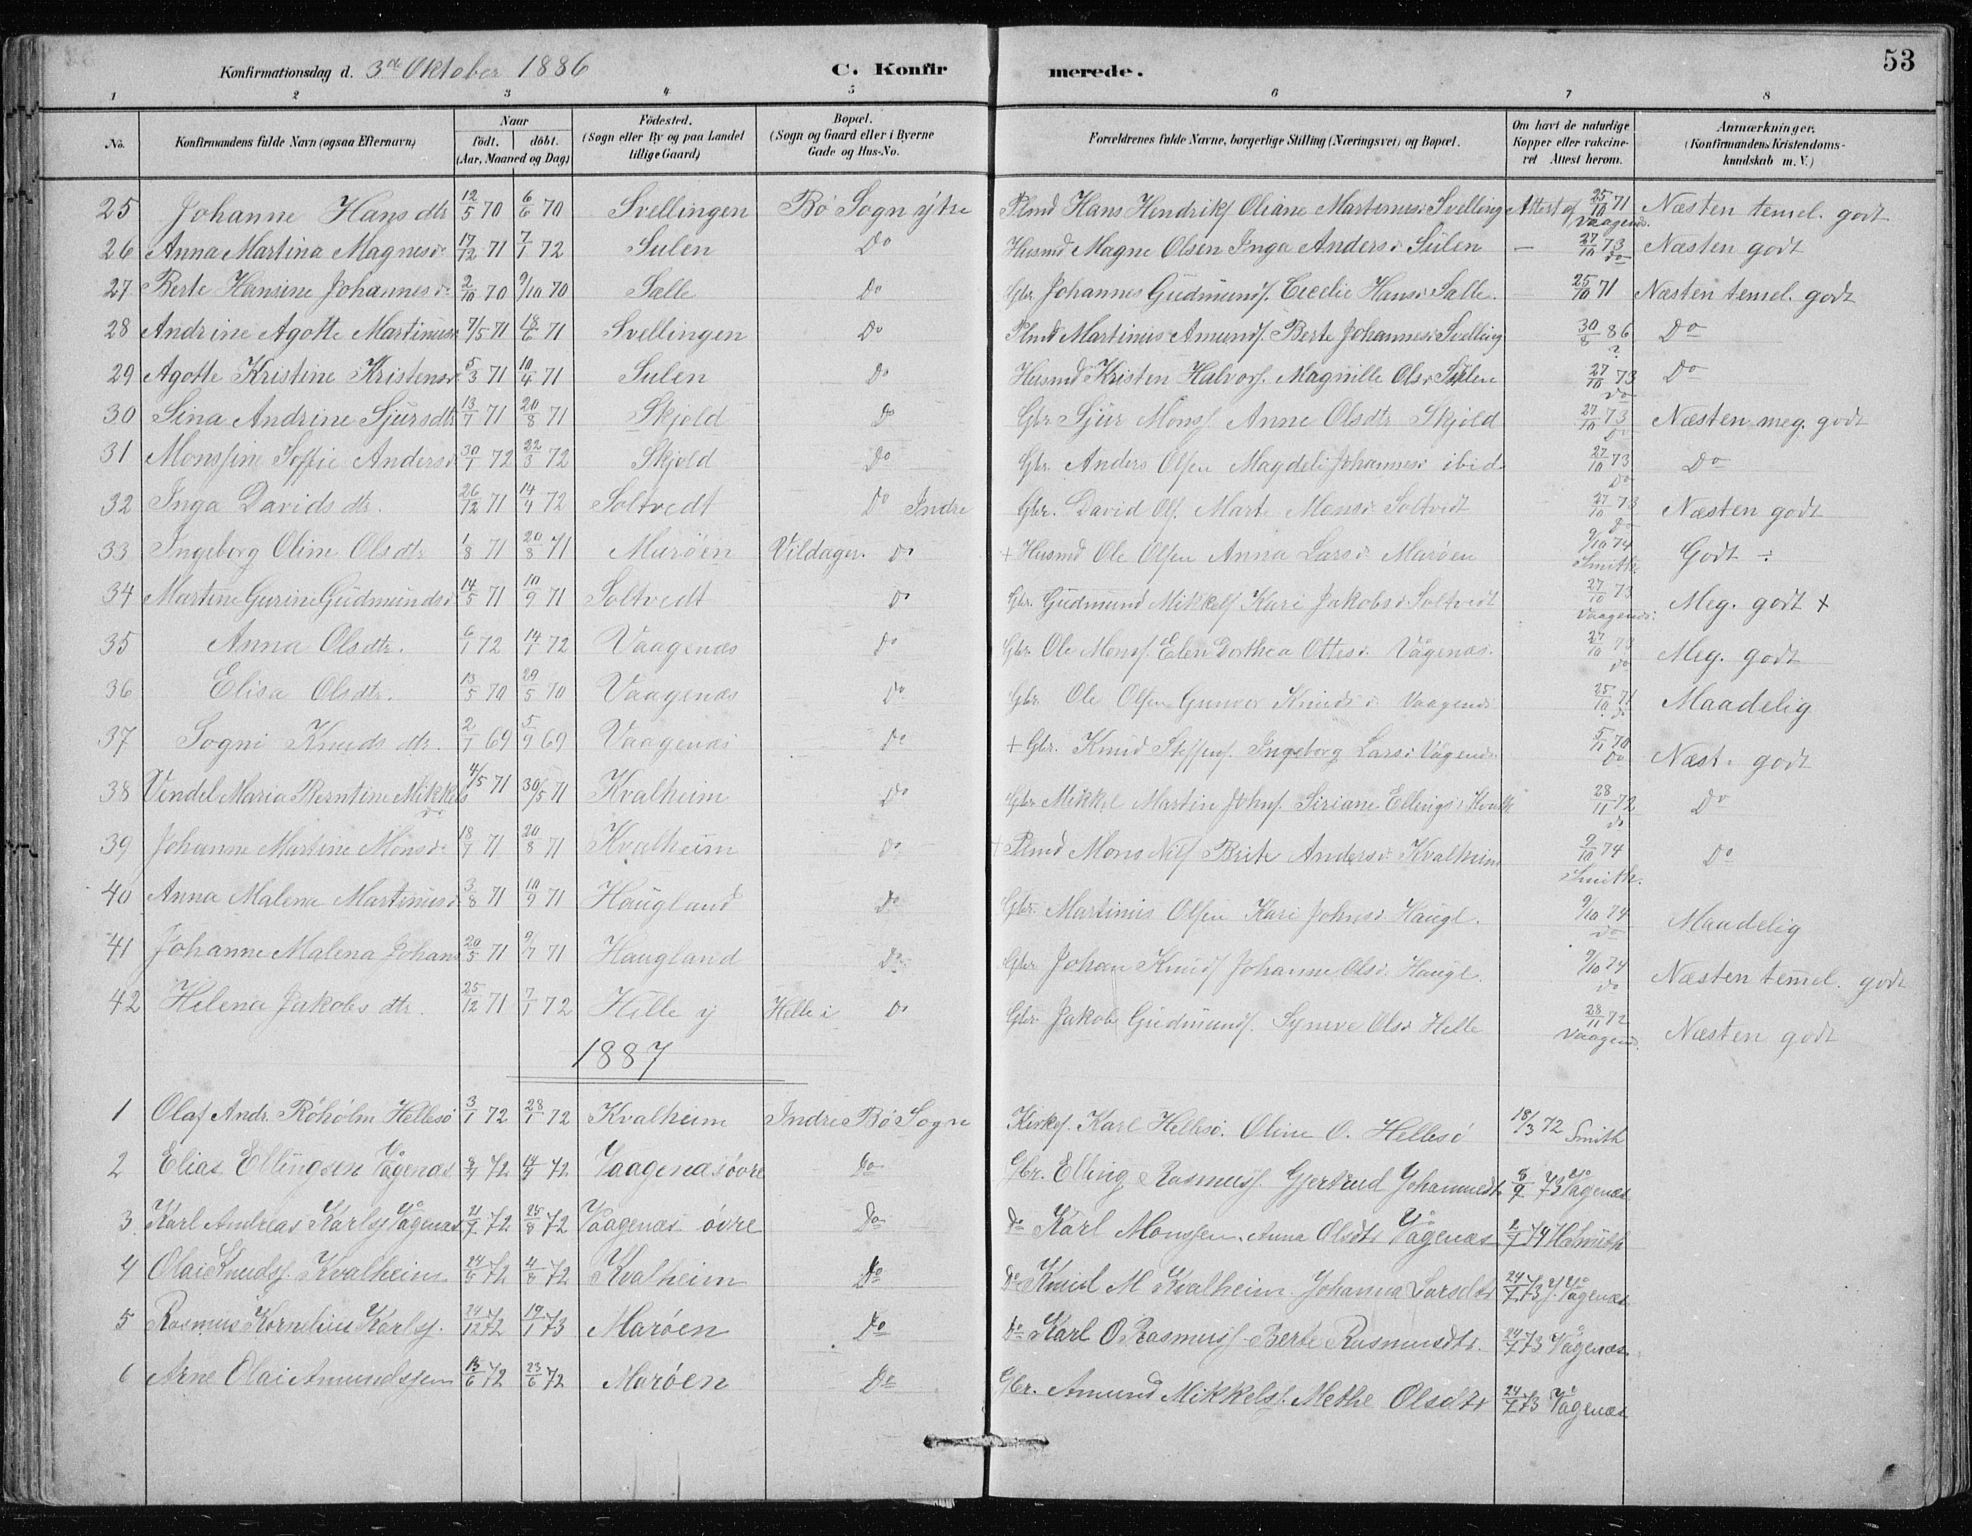 53
Konfirmationsdag d. 3die Oktober 1886 C. Konfirmerede.
1 2 3 4 5 6 7 8
No. Konfirmandens fulde Navn (ogsaa Efternavn) Naar født. døbt. (Aar, Maaned og Dag) Fødested. (Sogn eller By og paa Landet tillige Gaard) Bopæl. (Sogn og Gaard eller i Byerne Gade og Hus-No. Forældrenes fulde Navne, borgerlige Stilling (Næringsvei) og Bopæl. Om havt de naturlige Kopper eller vaccineret Attest herom. Anmærkninger. (Konfirmandens Kristendomskundskab m. V.)
25 Johanne Hans dtr 12/5 70 6/6 70 Svellingen Bø Sogn ytre Plmd Hans Hendriks. Oliane Martinusd. Svelling Attest af 25/10 71 Vaagenæs. Næsten temel. godt
26 Anna Martina Magnesd. 17/12 71 7/1 72 Sulen Do Husmd Magne Olsen Inga Andersd. Sulen — 27/10 73 do Næsten godt
27 Berte Hansine Johannesd. 2/10 70 9/10 70 Salle Do Gbr. Johannes Gudmunds. Cecelie Hansd. Salle. — 25/10 71 Næsten temel. godt
28 Andrine Agotte Martinusd. 7/5 71 18/6 71 Svellingen Do Plmd Martinus Amunds. Berte Johannesd. Svelling 30/8 86 Do
29 Agotte Kristine Kristensd. 5/3 71 10/4 71 Sulen Do Husmd Kristen Halvors. Magnille Olsd. Sulen 27/10 73 do Do
30 Sina Andrine Sjursdtr 13/7 71 20/8 71 Skjold Do Gbr Sjur Mons. Anne Olsdtr Skjold 27/10 73 Do Næsten meg. godt
31 Monssine Soffie Andersd. 30/1 72 22/3 72 Skjold Do Gbr. Anders Olsen Magdeli Johannesd. ibid 27/10 73 Do Do
32 Inga Davids dtr. 26/12 71 14/4 72 Soltvedt Do Indre Gbr. David Ols. Marte Monsd. Soltvedt 27/10 73 Do Næsten godt
33 Ingeborg Oline Olsdtr 1/8 71 20/8 71 Marøen Vildager. Do + Husmd Ole Olsen Anna Larsd. Marøen 9/10 74 Smith Godt ÷
34 Martine Gurine Gudmundsd. 14/5 71 10/9 71 Soltvedt Do Gbr. Gudmund Mikkels. Kari Jakobsd. Soltvedt 27/10 73 Vaagenæs. Meg. godt +
35 Anna Olsdtr. 6/1 72 14/4 72 Vaagenæs Do Gbr. Ole Mons. Elen Dorthea Ottesd. Vågenæs. 27/10 73 do Meg. godt
36 Elisa Olsdtr. 13/5 70 29/5 70 Vaagenæs Do Gbr. Ole Olsen Gunver Knudsd. Vaagenæs 25/10 71 do Maadelig
37 Sogni Knuds dtr. 2/7 69 5/9 69 Vaagenæs Do + Gbr. Knud Steffens. Ingeborg Larsd. Vågenæs. 5/11 70 Do Næst. godt
38 Vendel Maria Berntine Mikkelsdo 4/5 71 30/5 71 Kvalheim Do Gbr Mikkel Martin Johns. Siriane Ellingsd. Kvalh 28/11 72 do Do
39 Johanne Martine Monsd. 18/7 71 20/8 71 Kvalheim Do + Plmd Mons Nils. Brite Andersd. Kvalheim 9/10 74 Smith. Do
40 Anna Malena Martinusd. 3/8 71 10/9 71 Haugland Do Gbr. Martinus Olsen Kari Johnsd. Haugl. 9/10 74 do Maadelig
41 Johanne Malena Johans 20/5 71 9/7 71 Haugland Do Gbr. Johan Knuds. Johanne Olsd. Haugl. 9/10 74 do Næsten temel. godt
42 Helena Jakobs dtr. 25/12 71 7/1 72 Hille y Helle i Do Gbr. Jakob Gudmunds. Syneve Olsd. Helle 28/11 72 Vaagenæs. Næsten godt
1887
1 Olaf Andr. Røholm Hellesø 3/1 72 28/1 72 Kvalheim Indre Bø Sogn Kirkes. Karl Hellesø. Oline O. Hellesø 18/3 72 Smith
2 Elias Ellingsen Vågenæs 8/4 72 14/4 72 Vaagenæs øvre Do Gbr. Elling Rasmuss. Gjertrud Johannesdtr 8/9 73 Vågenæs
3 Karl Andreas Karls. Vågenæs 21/7 72 25/8 72 Vaagenæs øvre Do Do Karl Monssen. Anna Olsdtr Vågenæs
4 Olai Knuds. Kvalheim 24/6 72 4/8 72 Kvalheim Do Do Knud M Kvalheim. Johanna Larsdtr 24/7 73 J. Vågenæs
5 Rasmus Kornelius Karls. 24/12 72 19/1 73 Marøen Do Do Karl O Rasmuss. Berte Rasmusdtr. 24/7 73 Vågenæs
6 Arne Olai Amundssen 13/6 72 23/6 72 Marøen Do Gbr. Amund Mikkels. Methe Olsdtr 24/7 73 Vågenæs